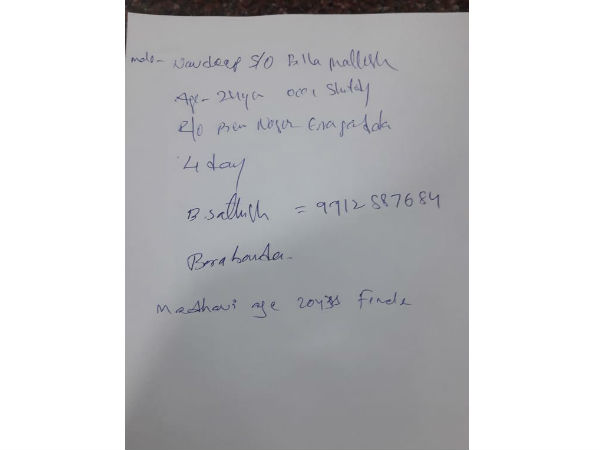 male- Navdeep S/O Billa Mallesh
Age- 24yrs occ: Study
R/O Prem Nagar Erragadda
4 day
B. Sathish = 9912587684
Borabanda.
Madhavi age 20yrs